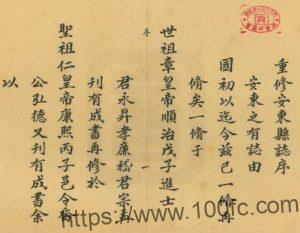 重修安東縣誌序
安東之有誌由
國初以迄今茲已一脩再
脩矣一脩于
世祖章皇帝順治戊子進士
君永昇孝廉嵇君宗孟
刊有成書再修於
聖祖仁皇帝康熙丙子邑令
公弘德又刊有成書余
以
序
一
https://www.100fc.com/